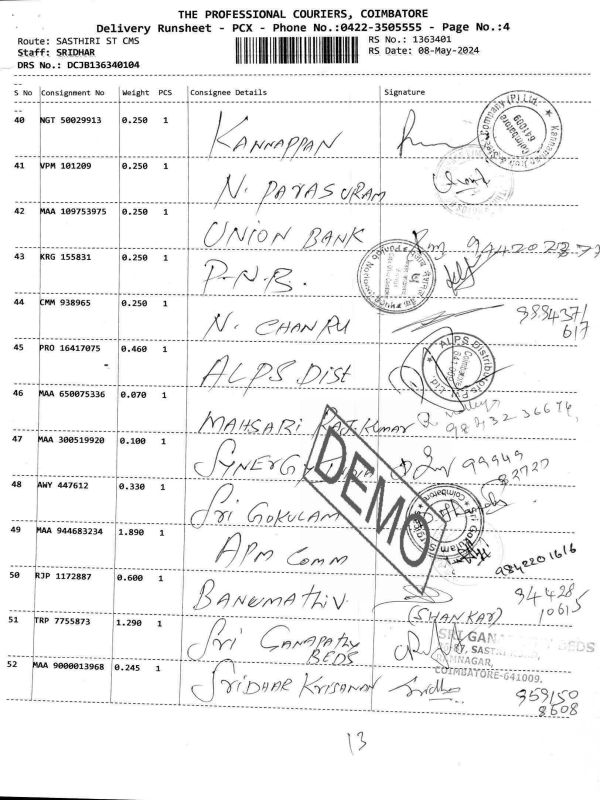 THE PROFESSIONAL COURIERS, COIMBATORE
Delivery Runsheet - PCX - Phone No.:0422-3505555 - Page No.:4
Route: SASTHIRI ST CMS
RS No.: 1363401
Staff: SRIDHAR
RS Date: 08-May-2024
DRS No.: DCJB136340104
S No Consignment No Weight PCS Consignee Details Signature
40 NGT 50029913 0.250 1 KANNAPPAN
Coimbatore 641009
41 VPM 101209 0.250 1 N. PARASURAM
42 MAA 109753975 0.250 1 UNION BANK
43 KRG 155831 0.250 1 P.N.B.
44 CMM 938965 0.250 1 N. CHANRU 989437/
617
45 PRO 16417075 0.460 1 ALPS Dist
ALPS Distributors
46 MAA 650075336 0.070 1 MAHSARI RAJKUMAR
47 MAA 300519920 0.100 1 SYNERGY INDIA 99949
82727
48 AWY 447612 0.330 1 Sri GOKULAM
49 MAA 944683234 1.890 1 APM COMM 9842201616
50 RJP 1172887 0.600 1 BANUMATHI V. 94428
10615
(SHANKAR)
51 TRP 7755873 1.290 1 Sri GANAPATHY
BEDS
SRI GAN BEDS
COIMBATORE-641009.
52 MAA 9000013968 0.245 1 SRIDHAR KRISHNAN Sridhar 959150
8608
DEMO
13